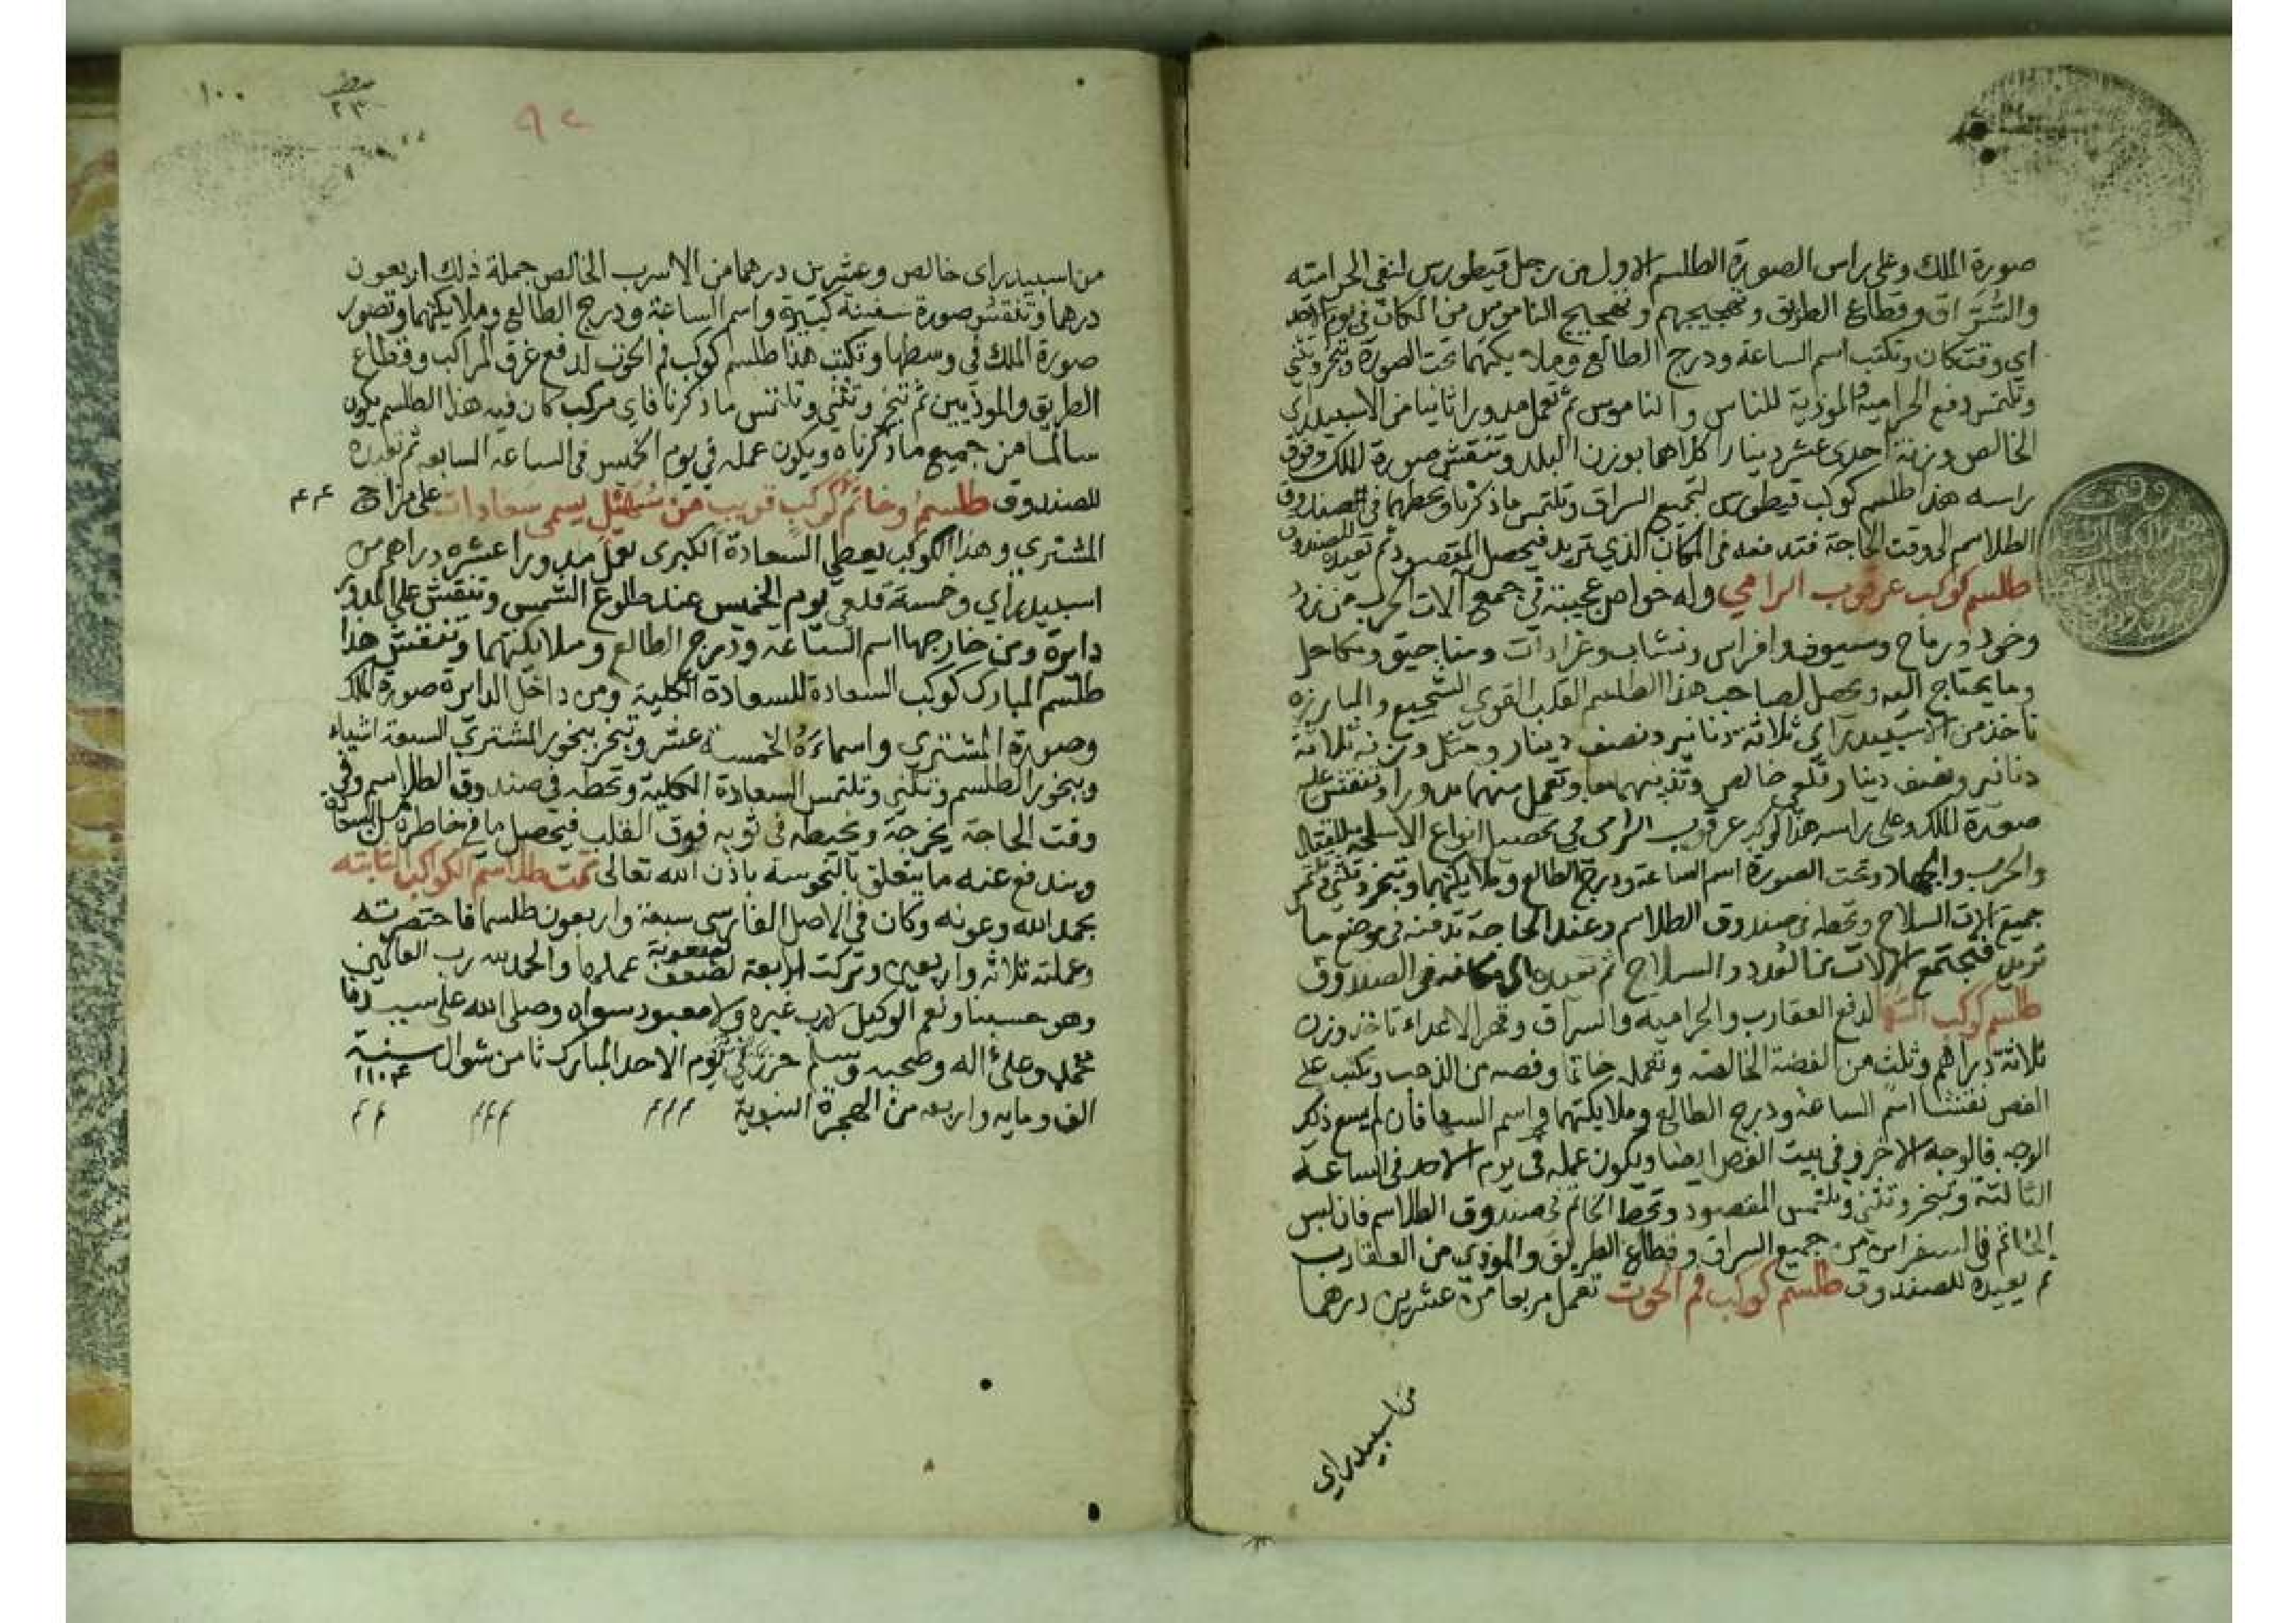 صورة الملك وعلى راس الصورة الطلسم الاول من رجل قيطورس لنفي الحرامية
والسراق وقطاع الطريق وتهجيجهم وتهجيج الناموس من المكان في يوم الاحد
اي وقت كان وتكتب اسم الساعة ودرج الطالع وملايكتهما تحت الصورة وتبخر وتثني
وتلتمس دفع الحرامية والموذية للناس والناموس ثم تعمل مدورا ثانيا من الاسبيدراي
الخالص وزنة احدى عشر دينارا كلاهما بوزن البلد وتنقش صورة الملك وفوق
راسه هذا طلسم كوكب قيطورس لجميع السراق وتلتمس ما ذكرنا وتحطهما في صندوق
الطلاسم الى وقت الحاجة فتدفعه في المكان الذي تريد فيحصل المقصود ثم تعيده للصندوق
طلسم كوكب عرقوب الرامي وله خواص عجيبة في جمع آلات الحرب من زرد
وخود ورماح وسيوف وافراس ونشاب وعرادات ومناجيق ومكاحل
وما يحتاج اليه ويحصل لصاحب هذا الطلسم القلب القوي الشجيع والمبارزه
تاخذ من الاسبيدراي ثلاثة دنانير ونصف دينار ومثل وزنه ثلاثة
دنانير ونصف دينار قلعي خالص وتذيبهما معا وتعمل منهما مدورا وتنقش عليه
صورة الملك وعلى راسه هذا كوكب عرقوب الرامي في تحصيل انواع الاسلحة للقتال
والحرب والجهاد وتحت الصورة اسم الساعة ودرج الطالع وملايكتهما وتبخر وتثني وتلتمس
جميع آلات السلاح وتحطه في صندوق الطلاسم وعند الحاجة تدفنه في موضع ما
تريد فيجتمع الآلات من العدد والسلاح ثم تعيده الى مكانه في الصندوق
طلسم كوكب السها لدفع العقارب والحرامية والسراق وقهر الاعداء تاخذ وزن
ثلاثة دراهم وثلث من الفضة الخالصة وتعمله خاتما وفصه من الذهب وتكتب على
الفص نقشا اسم الساعة ودرج الطالع وملايكتهما واسم السها فان لم يسع ذلك
الوجه فالوجه الاخر وفي بيت الفص ايضا ويكون عمله في يوم الاحد في الساعة
الثالثة وتبخر وتثني وتلتمس المقصود وتحط الخاتم في صندوق الطلاسم فان لبس
الخاتم في السفر امن من جميع السراق وقطاع الطريق والموذي من العقارب
ثم يعيده للصندوق طلسم كوكب فم الحوت تعمل مربعا من عشرين درهما
من اسبيدراي
١٠٠
٩٢
من اسبيدراي خالص وعشرين درهما من الاسرب الخالص جملة ذلك اربعون
درهما وتنقش صورة سفينة كبيرة واسم الساعة ودرج الطالع وملايكتهما وتصور
صورة الملك في وسطها وتكتب هذا طلسم كوكب فم الحوت لدفع غرق المراكب وقطاع
الطريق والموذيين ثم تبخر وتثني وتلتمس ما ذكرنا فاي مركب كان فيه هذا الطلسم يكون
سالما من جميع ما ذكرناه ويكون عمله في يوم الخميس في الساعة السابعه ثم تعيده
للصندوق طلسم وخاتم كوكب قريب من سهيل يسمى سعادات على مزاج
المشتري وهذا الكوكب يعطي السعادة الكبرى تعمل مدورا عشره دراهم من
اسبيدراي وخمسة قلعي يوم الخميس عند طلوع الشمس وتنقش على المدور
دايرة ومن خارجها اسم الساعة ودرج الطالع وملايكتهما وتنقش هذا
طلسم المبارك كوكب السعادة للسعادة الكلية ومن داخل الدايرة صورة الملك
وصورة المشتري واسماءه الخمسة عشر وتبخر ببخور المشتري السبعة اشياء
وببخور الطلسم وتثني وتلتمس السعادة الكلية وتحطه في صندوق الطلاسم وفي
وقت الحاجة يخرجه ويخيطه في ثوبه فوق القلب فيحصل ما في خاطره من السعادة
ويندفع عنه ما يتعلق بالنحوسه باذن الله تعالى تمت طلاسم الكواكب الثابته
بحمد الله وعونه وكان في الاصل الفارسي سبعة واربعون طلسما فاختصرته
وعملته ثلاثه واربعين وتركت اربعة لصعوبة عملها والحمد لله رب العالمين
وهو حسبنا ونعم الوكيل لا رب غيره ولا معبود سواه وصلى الله على سيدنا
محمد وعلى آله وصحبه وسلم حرر في يوم الاحد المبارك ثامن شوال سنة ١١٠٤
الف ومايه واربعه من الهجرة النبوية